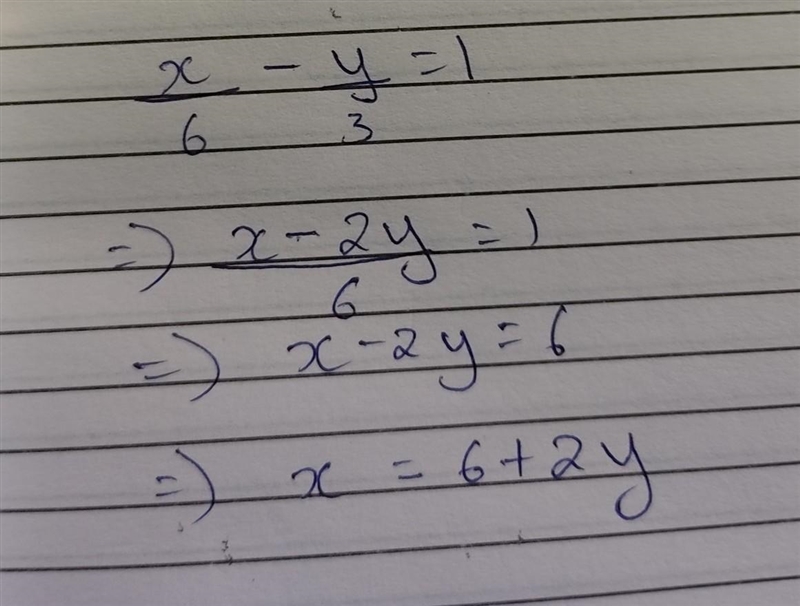 x/6 - y/3 = 1
=> (x - 2y)/6 = 1
=> x - 2y = 6
=> x = 6 + 2y